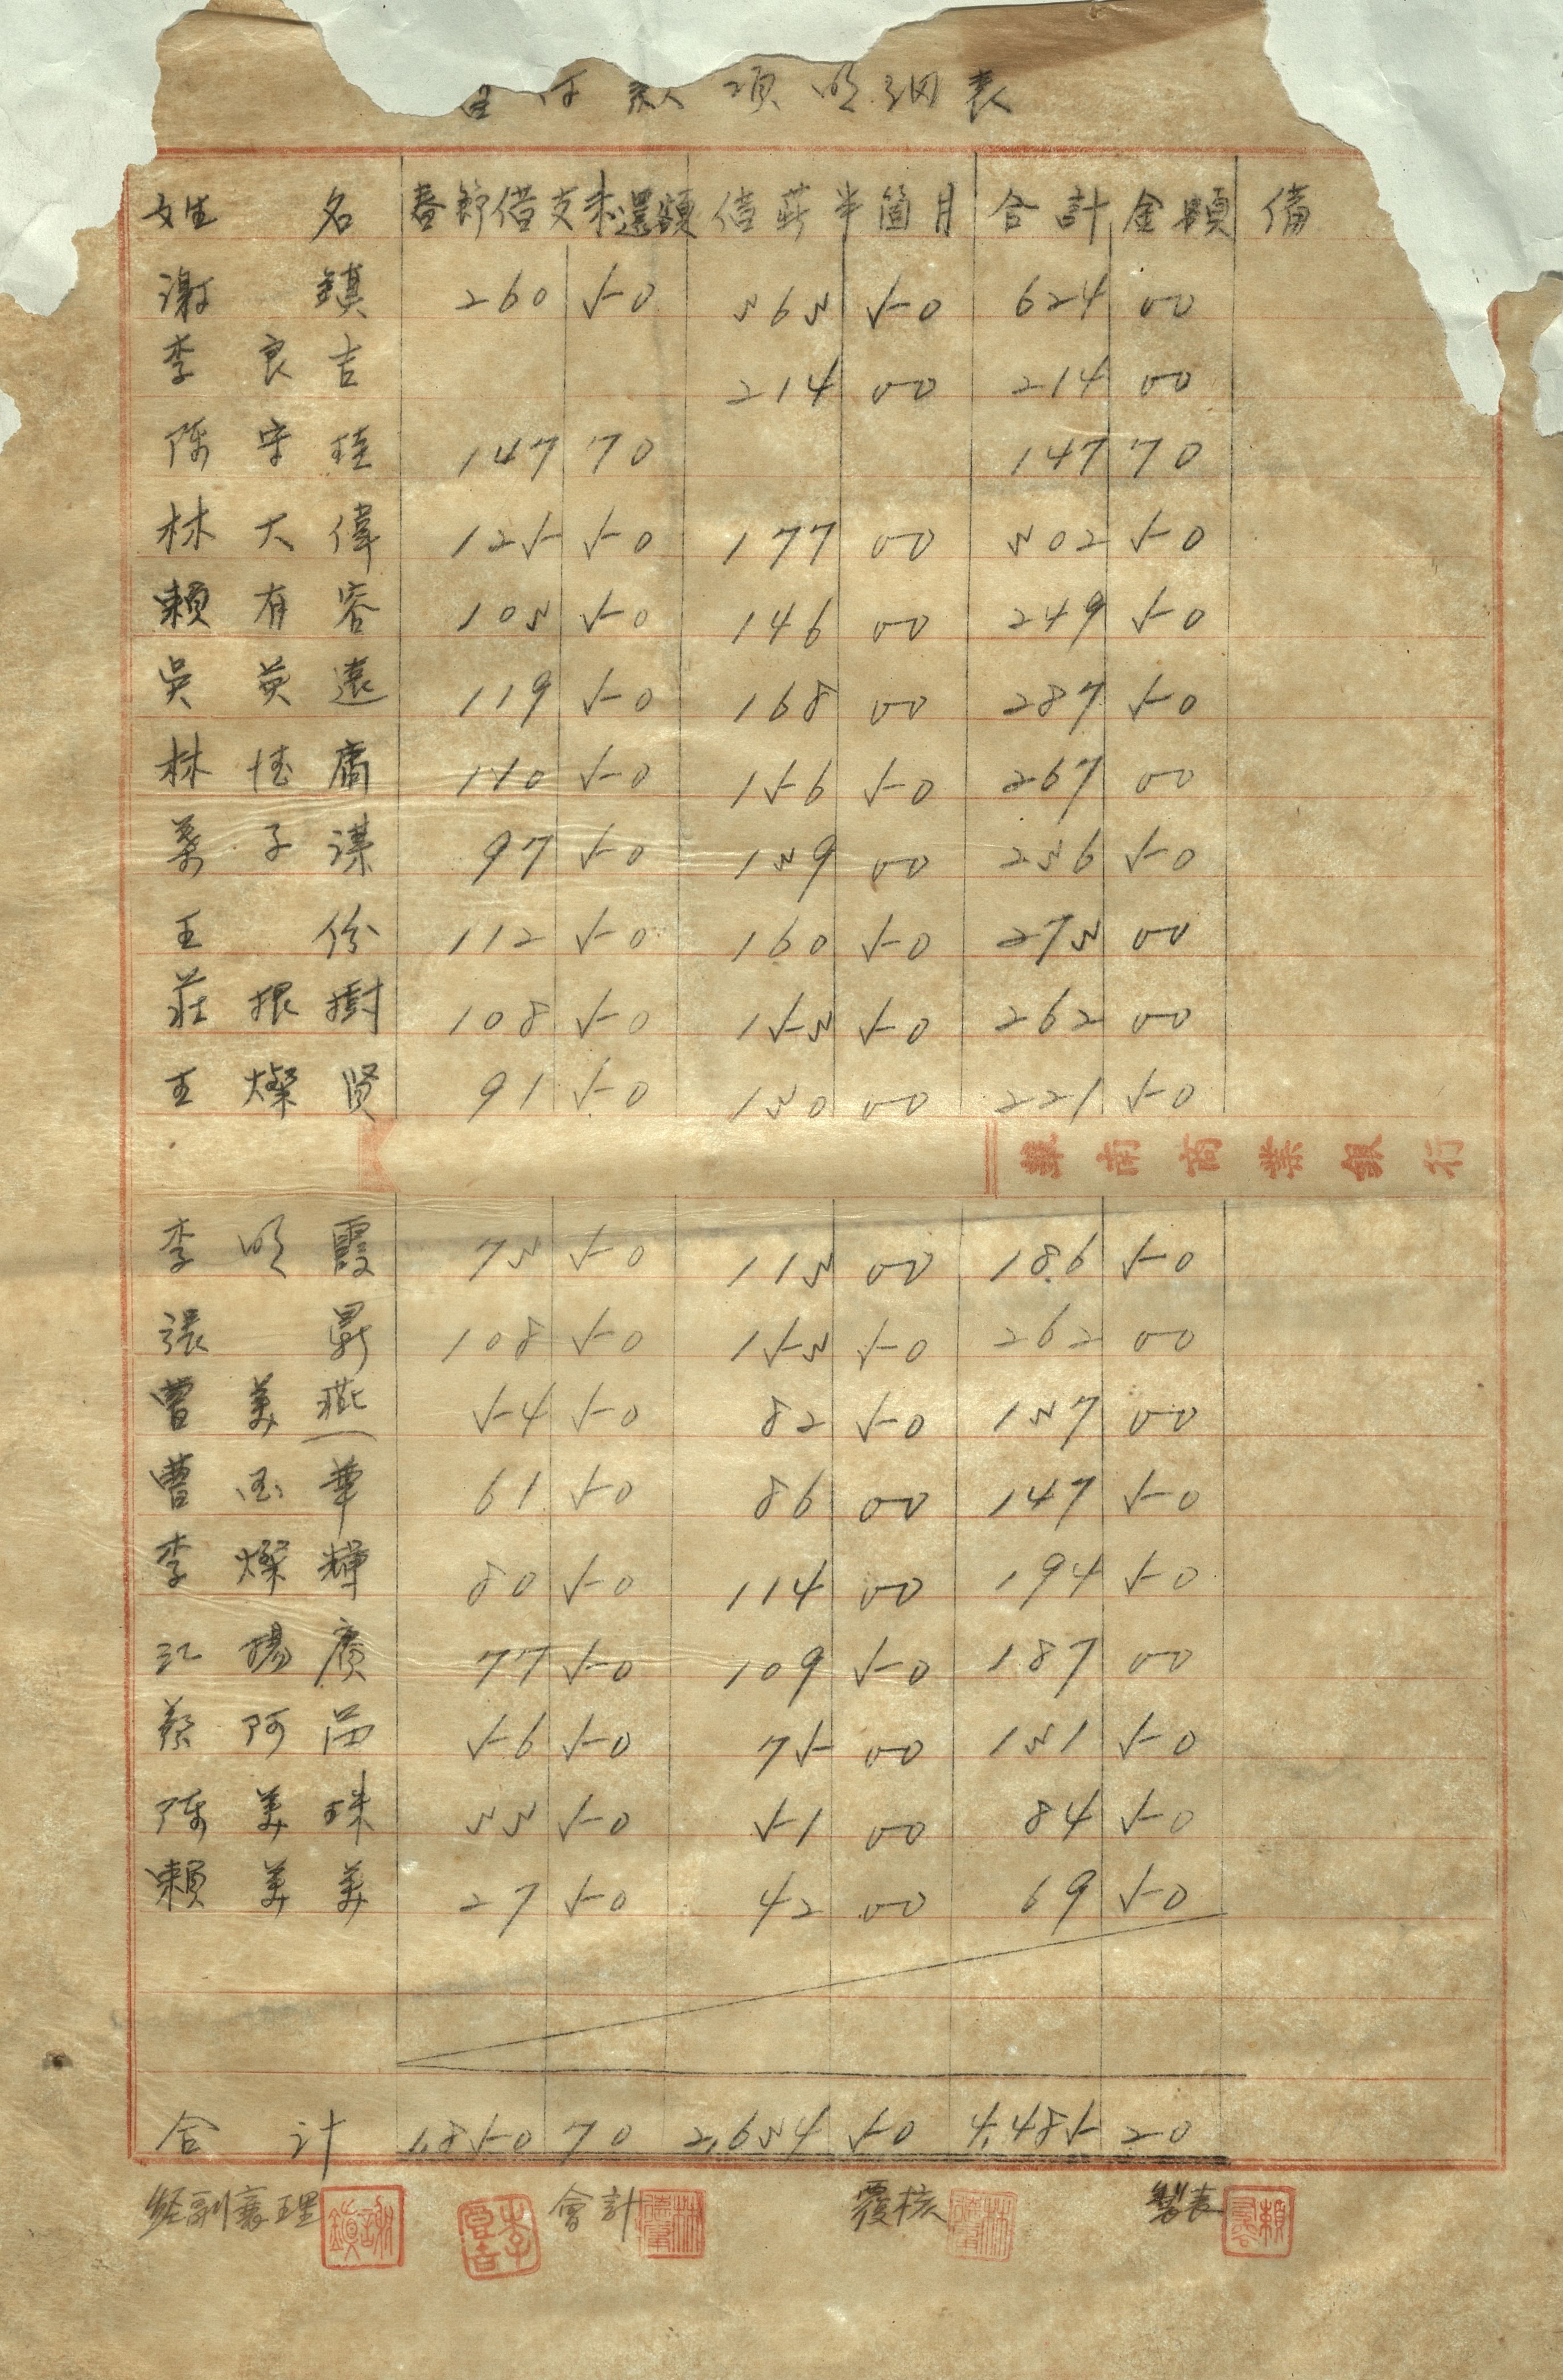 付款項明細表
姓名 春節借支未還額 借薪半箇月 合計金額 備
謝鎮 260 50 363 50 624 00
李良吉 214 00 214 00
陳守珪 147 70 147 70
林大偉 125 50 177 00 302 50
賴有容 103 50 146 00 249 50
吳英遠 119 50 168 00 287 50
林 110 50 156 50 267 00
葉子謀 97 50 139 00 236 50
王份 112 50 160 50 273 00
莊根樹 108 50 153 50 262 00
王燦賢 91 50 130 00 221 50
華南商業銀行
李明霞 73 50 113 00 186 50
張 108 50 153 50 262 00
曹美燕 54 50 82 50 137 00
曹玉華 61 50 86 00 147 50
李燦輝 80 50 114 00 194 50
江楊 77 50 109 50 187 00
蔡阿 56 50 75 00 131 50
陳美珠 33 50 51 00 84 50
賴美美 27 50 42 00 69 50
合計 1,850 70 2,634 50 4,485 20
經副襄理 謝鎮 會計 覆核 製表